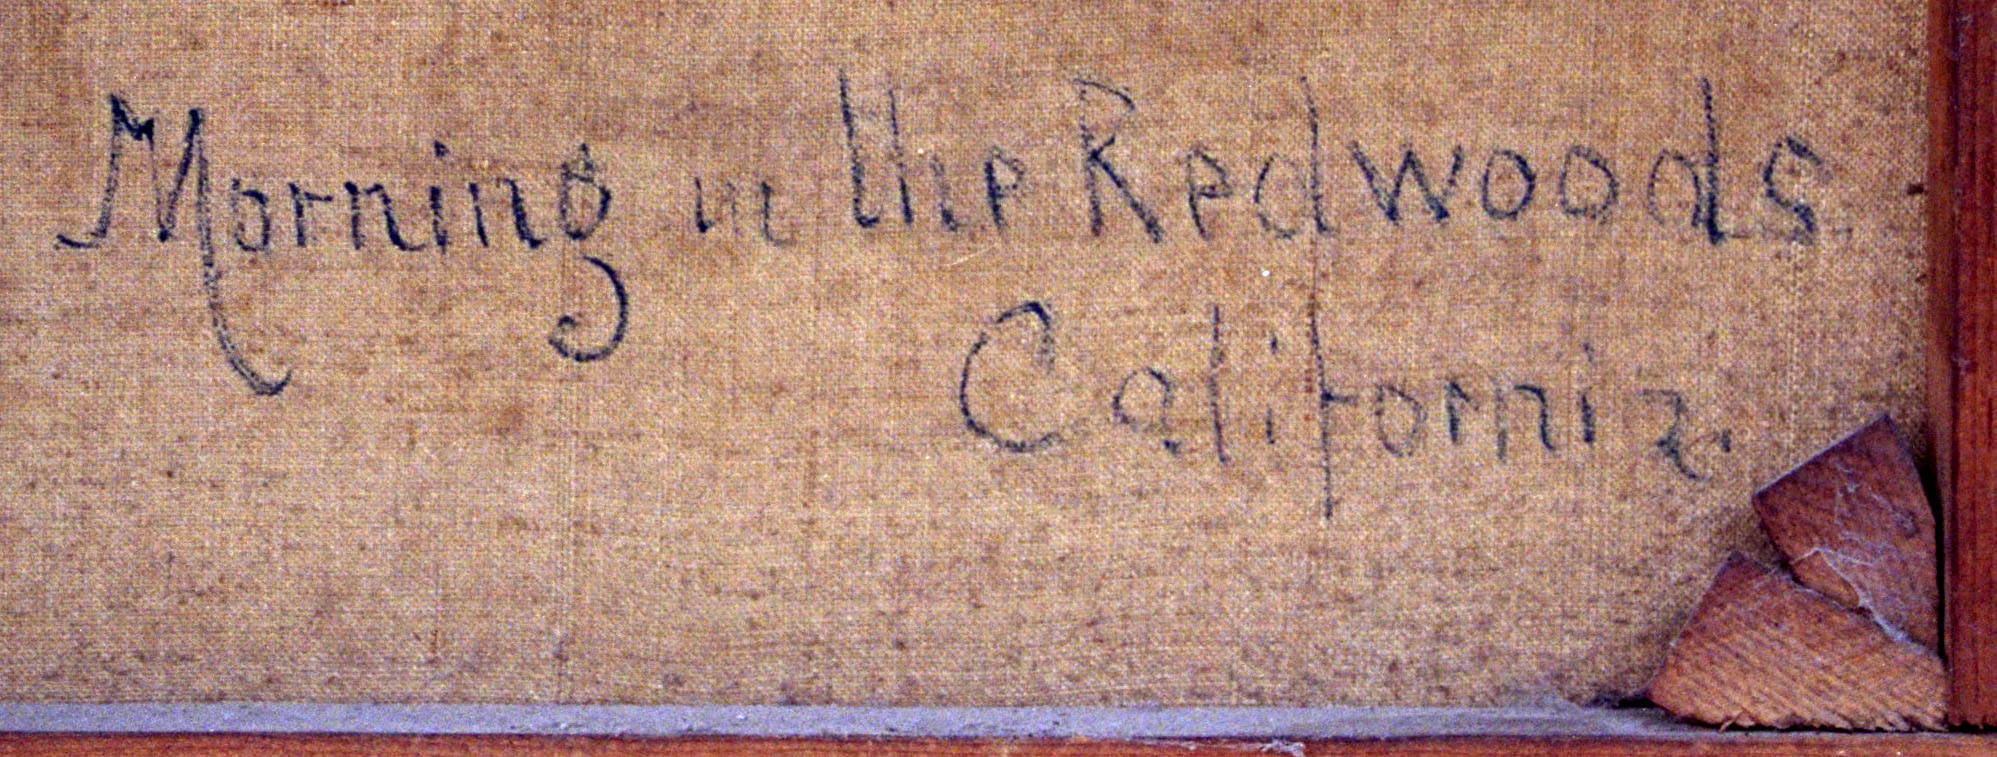 Morning in the Redwoods.
California.